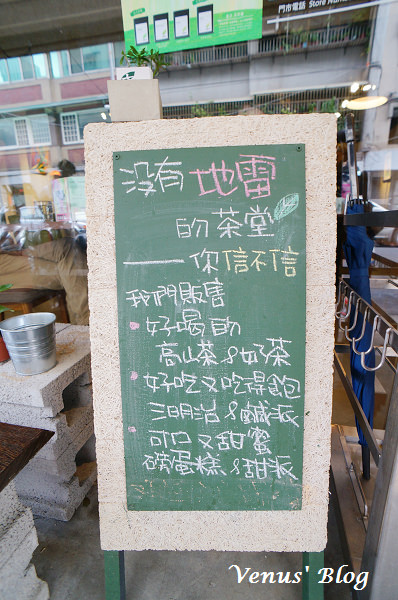 門市電話 Store Num
沒有地雷
的茶堂
——你信不信
我們販售
好喝的
高山茶&好茶
好吃又吃得飽
三明治&鹹派
可口又甜蜜
磅蛋糕&甜派
Venus' Blog